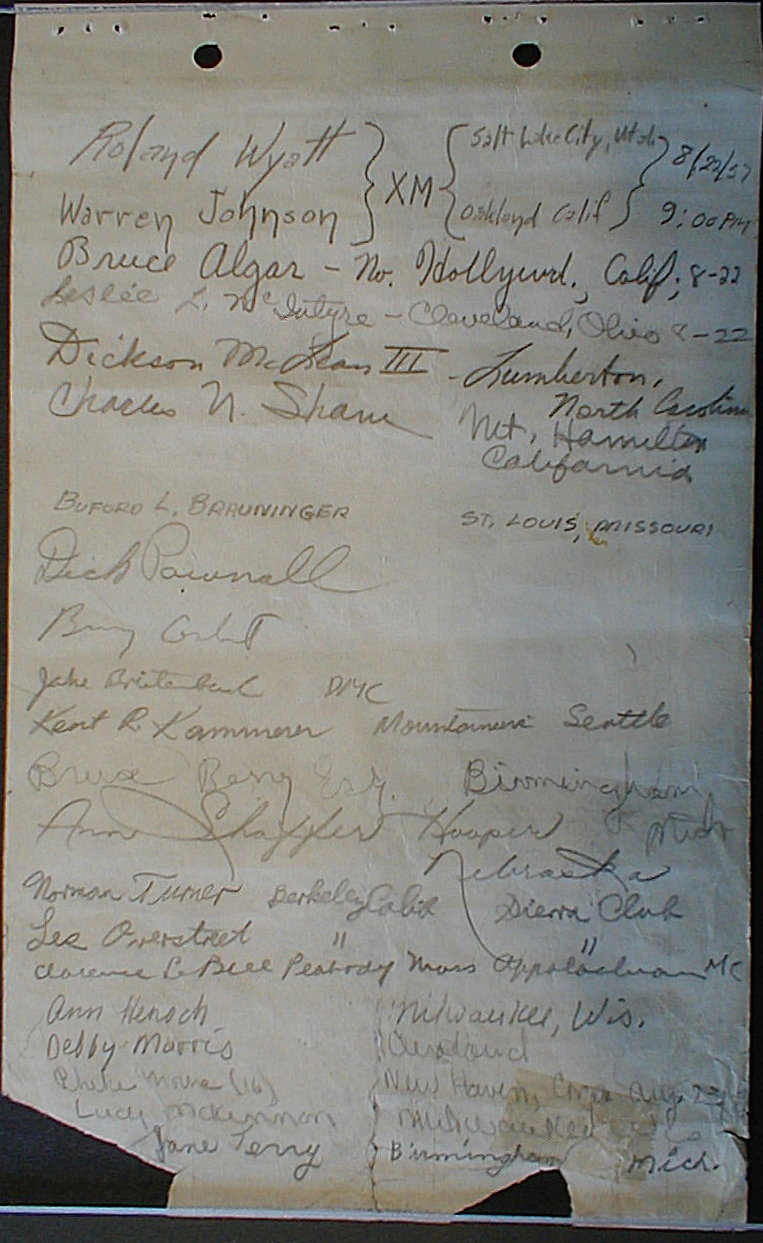 Roland Wyatt } XM { Salt Lake City, Utah } 8/22/57
Warren Johnson Oakland Calif 9:00 PM
Bruce Algar - No. Hollywd., Calif; 8-22
Leslie L. McIntyre - Cleveland, Ohio 8-22
Dickson McLean III - Lumberton,
North Carolina
Charles N. Shane Mt. Hamilton
California
BUFORD L. BRAUNINGER ST. LOUIS, MISSOURI
Dick Pownall
Barry Corbet
Jake Breitenbach DMC
Kent R. Kammerer Mountaineers Seattle
Bruce Berry Esq. Birmingham
Mich
Ann Shaffer Hooper
Nebraska
Norman Turner Berkeley Calif Sierra Club
Les Overstreet " "
Clarence LeBell Peabody Mass Appalachian MC
Ann Hensch Milwaukee, Wis.
Debby Morris Cleveland
(16) New Haven, Conn Aug. 23
Lucy McKinnon Milwaukee
Jane Terry Birmingham Mich.